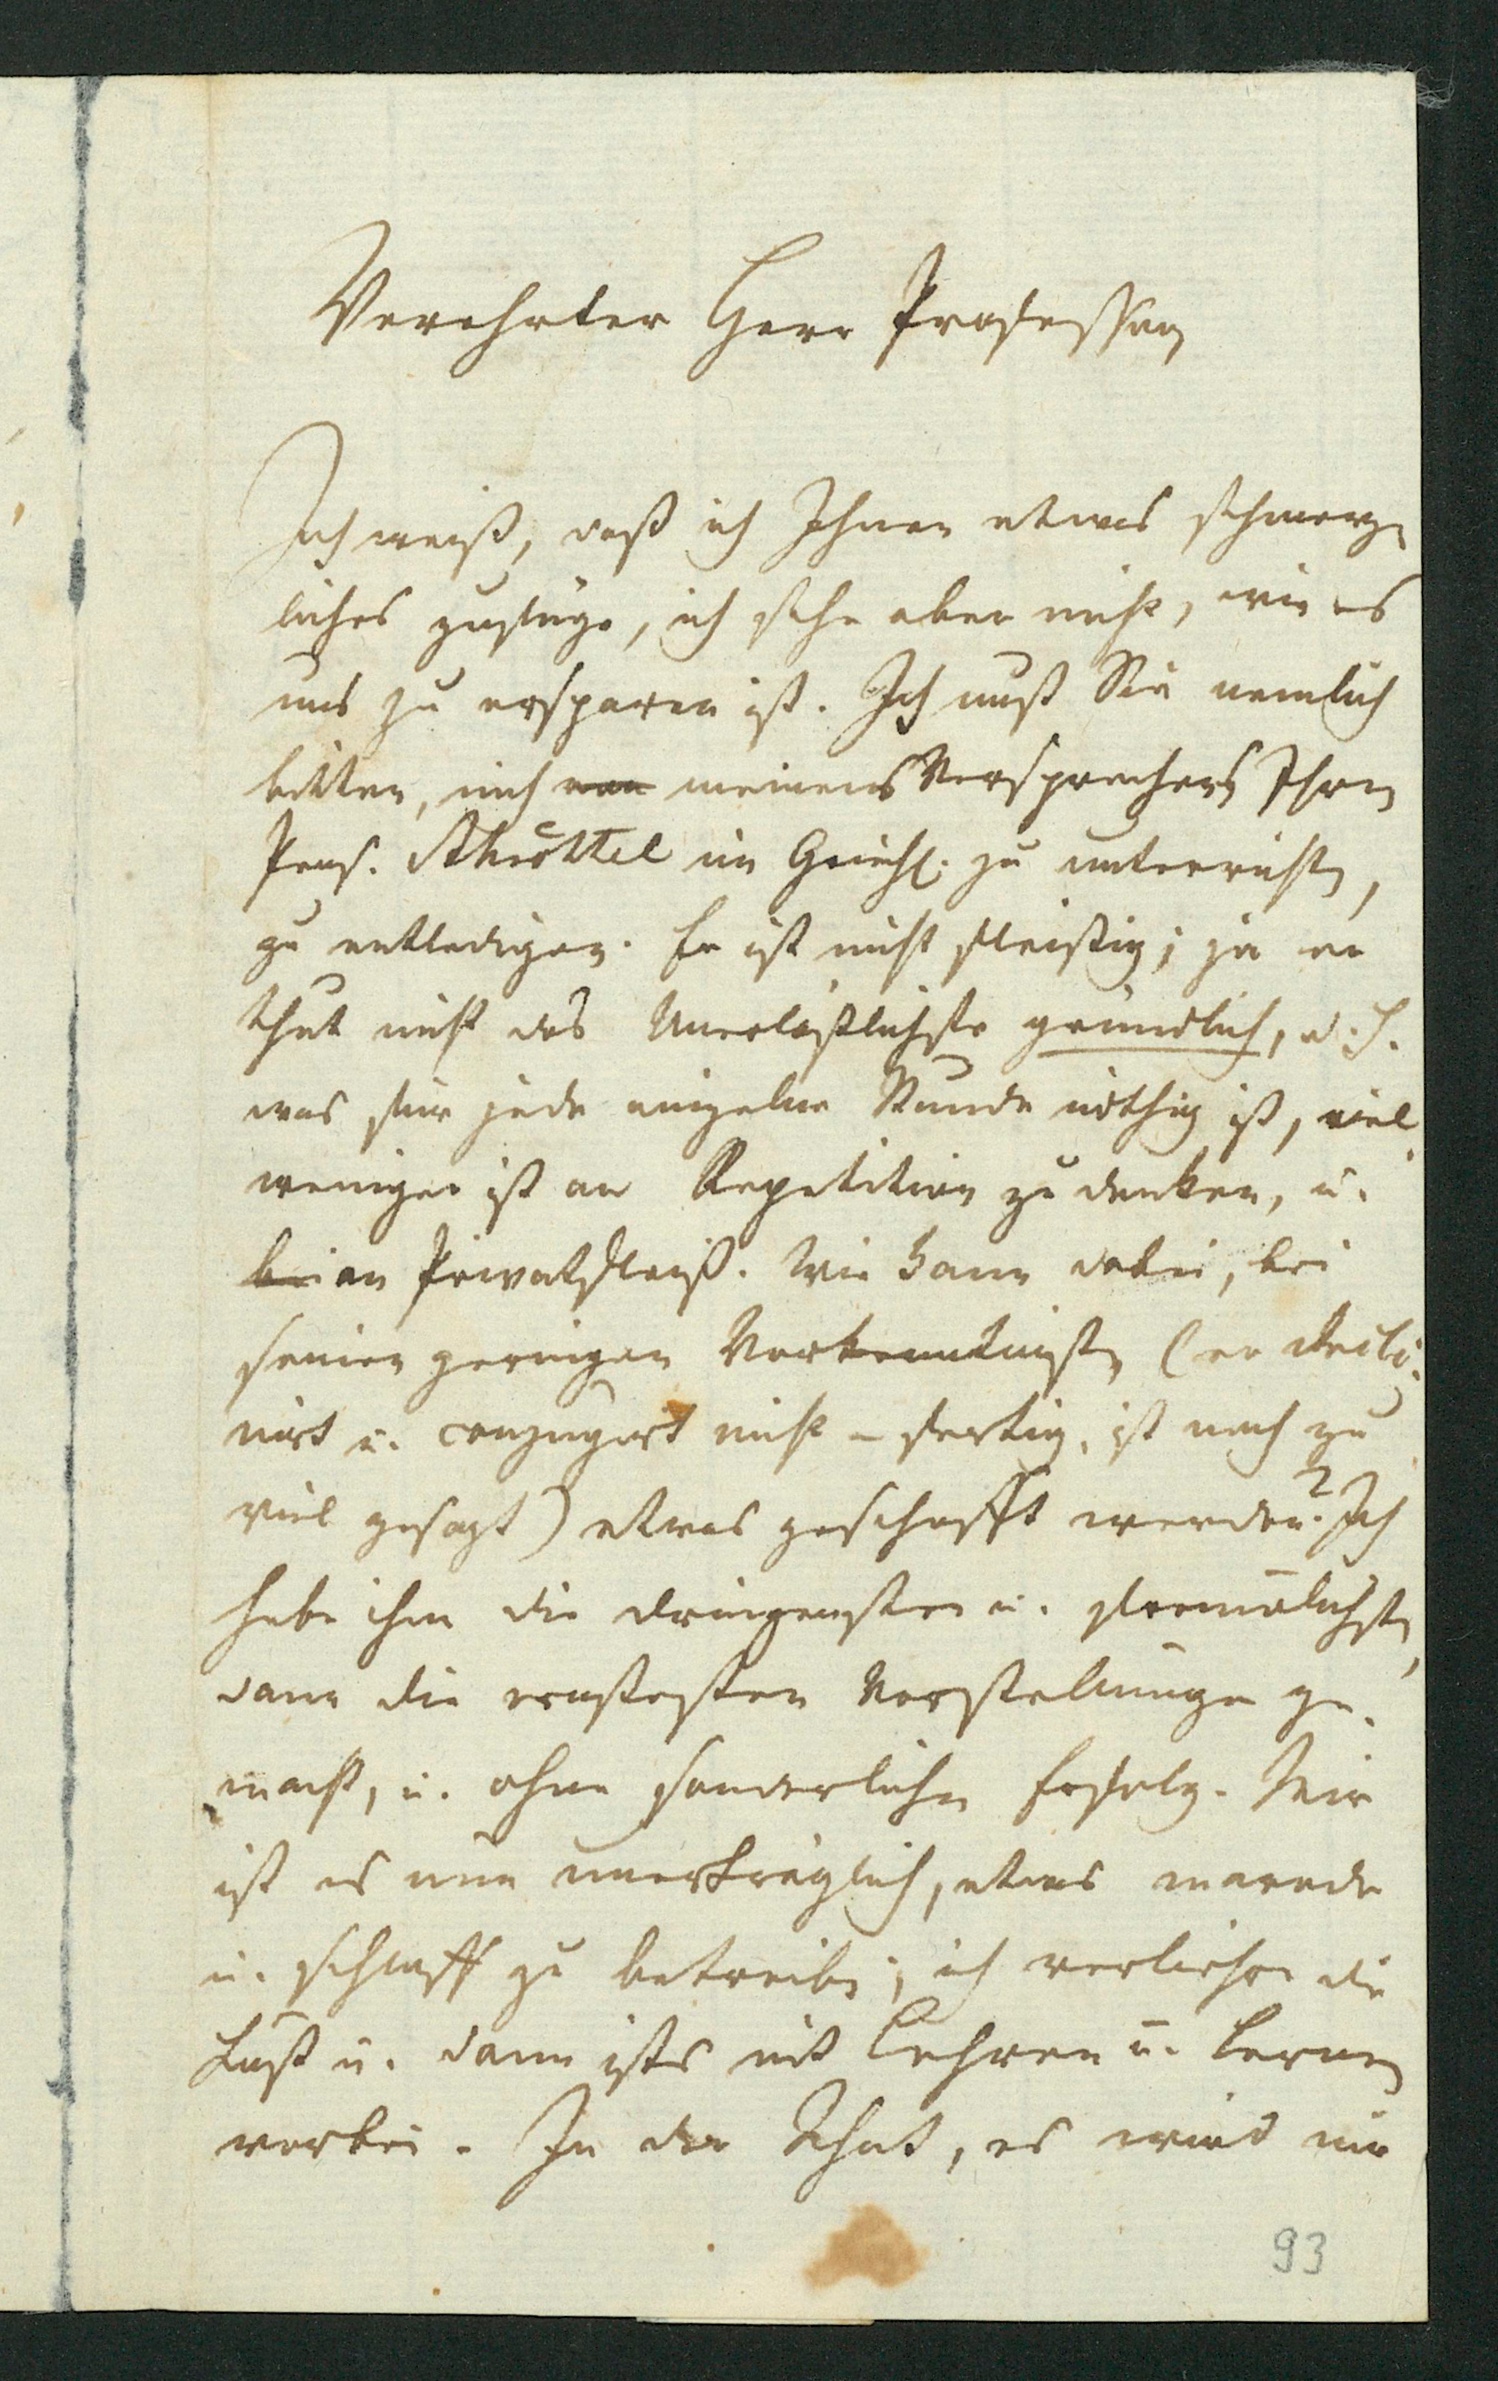 Verehrter Herr Professor,
Ich weiß, daß ich Ihnen etwas schmerz-
liches zufüge, ich sehe aber nicht, wie es
uns zu ersparen ist. Ich muß Sie nemlich
bitten, mich von meines Versprechens Ihren
Pens. im Griech. zu unterrichten,
zu entledigen. Er ist nicht fleißig; ja er
thut nicht das Unerläßlichste gründlich, d. h.
was für jede einzelne Stunde nöthig ist, viel
weniger ist an Repetition zu denken, u.
bei an Privatfleiß. Wie kann dabei, bei
seinen geringen Vorkenntnissen (er decli-
nirt u. conjugirt nicht – fertig, ist noch zu
viel gesagt) etwas geschafft werden? Ich
habe ihm die dringensten u. freundlichsten,
dann die ernstesten Vorstellungen ge-
macht, u. ohne sonderlichen Erfolg. Mir
ist es nun unerträglich, etwas marode
u. schlaff zu betreiben; ich verliehre die
Lust u. dann ists mit Lehren u. Lernen
vorbei. In der That, es wird mir
93